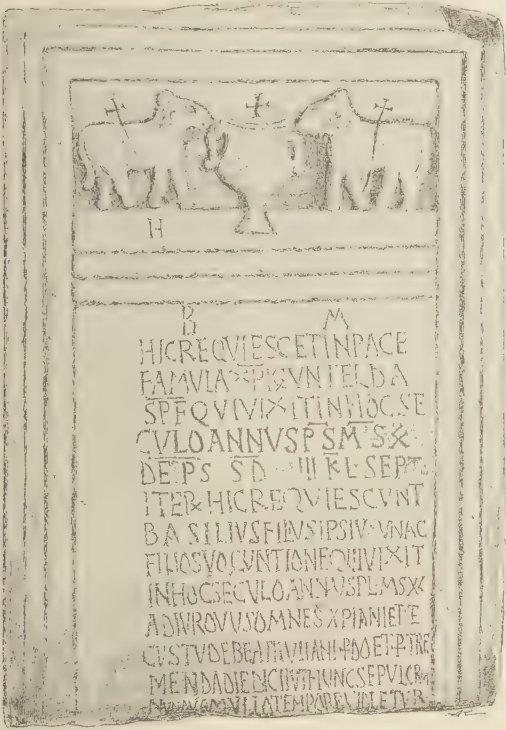 H
B M
HIC REQVIESCET IN PACE
FAMVLA XPI GVNTELDA
SPF QVI VIXIT IN HOC SE
CVLO ANNVS PS M S X
DEPS SD III KL SEPT
ITER HIC REQVIESCVNT
BASILIVS FILIVS IPSIVS VNA C
FILIO SVO GVNTIONE QVI VIXIT
IN HOC SECVLO ANNVS PLMS X
ADIVRO VVS OMNES XPIANI ET TE
CVSTVDE BEATI IVLIANI P DO ET P TRE
MENDA DIE IVDICII VT HVNC SEPVLCRV
NVNQVAM VLLO TEMPORE VIOLETVR